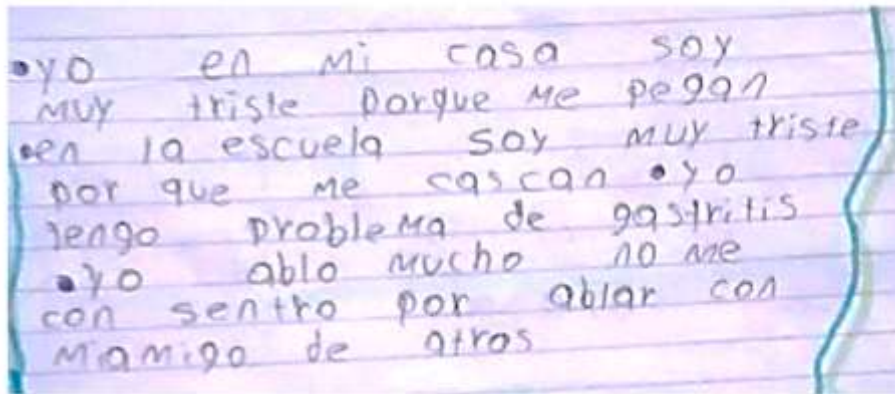 •yo en mi casa soy
muy triste porque me pegan
•en la escuela soy muy triste
por que me cascan •yo
tengo problema de gastritis
•yo ablo mucho no me
con sentro por ablar con
mamigo de atros